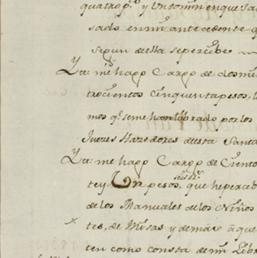 quatro p.s y Un tomin en que sa
sado en mi antecedente q
segun della se percibe
Yt. me hago Cargo de dos mil
trocientos cinquenta pesos, l
mos q.e se me han librado por los
Jueces Hazedores de esta Santa
Yt. me hago Cargo de Ciento
te y Un pesos, seis rr.s que he perci
de los Manuales de los Niños
tes, de Missas y demas a que
ten como consta de mi Libro